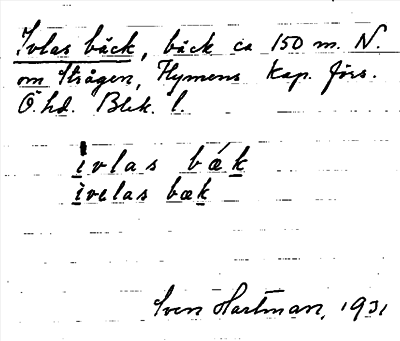 Ivlas bäck, bäck ca 150 m. N.
om Strågen, Hymens Kap. förs.
Ö. hd. Blek. l.
ivlas bǽk
ivelas bæk
Sven Hartman, 1931